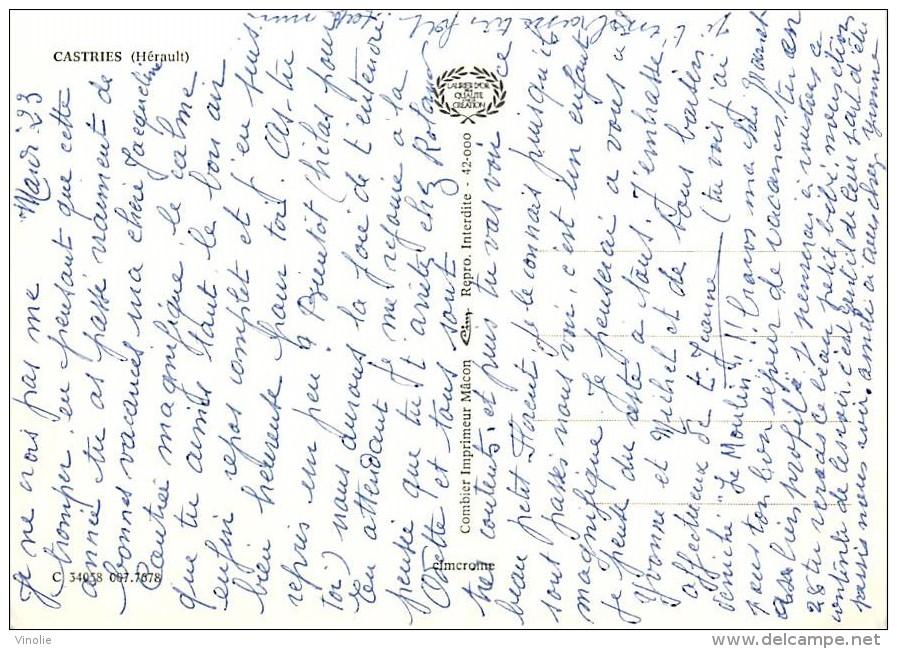 CASTRIES (Hérault)
Mardi 23
Je ne crois pas me
tromper en pensant que cette
année tu as passé vraiment de
bonnes vacances ma chère Jacqueline
Contrée magnifique le calme
que tu aimes tant le bon air
enfin repos complet et j'en suis
bien heureuse pour toi. As-tu
repris un peu ? Bientôt (hélas pour
toi) nous aurons la joie de t'entendre
En attendant je me réjouie à la
pensée que tu t'arrêtes chez Roland
Odette et tous sont
très contents, et puis tu vas voir ce
beau petit Florent je le connais puisqu'ils
sont passés nous voir, c'est un enfant
magnifique Je penserai à vous
Je pense du reste à tous J'embrasse
Yvonne et Michel et de tous baisers
affectueux de t. Jeanne (tu vois j'ai
déniché "Le Moulin"!!)
avec ton bon séjour de vacances, tu en
as bien profité
28 tu verras ce beau petit bébé mes
contente de les voir, c'est gentil de leur part d'être
passés nous voir, aussi chez Yvonne
Je t'embrasse très fort
Combier Imprimeur Mâcon Cim Repro. Interdite - 42-000
LAURIER D'OR
DE LA
QUALITÉ
CRÉATION
C 34058 007.7078
cimcrome
Vinolie
www.delcampe.net